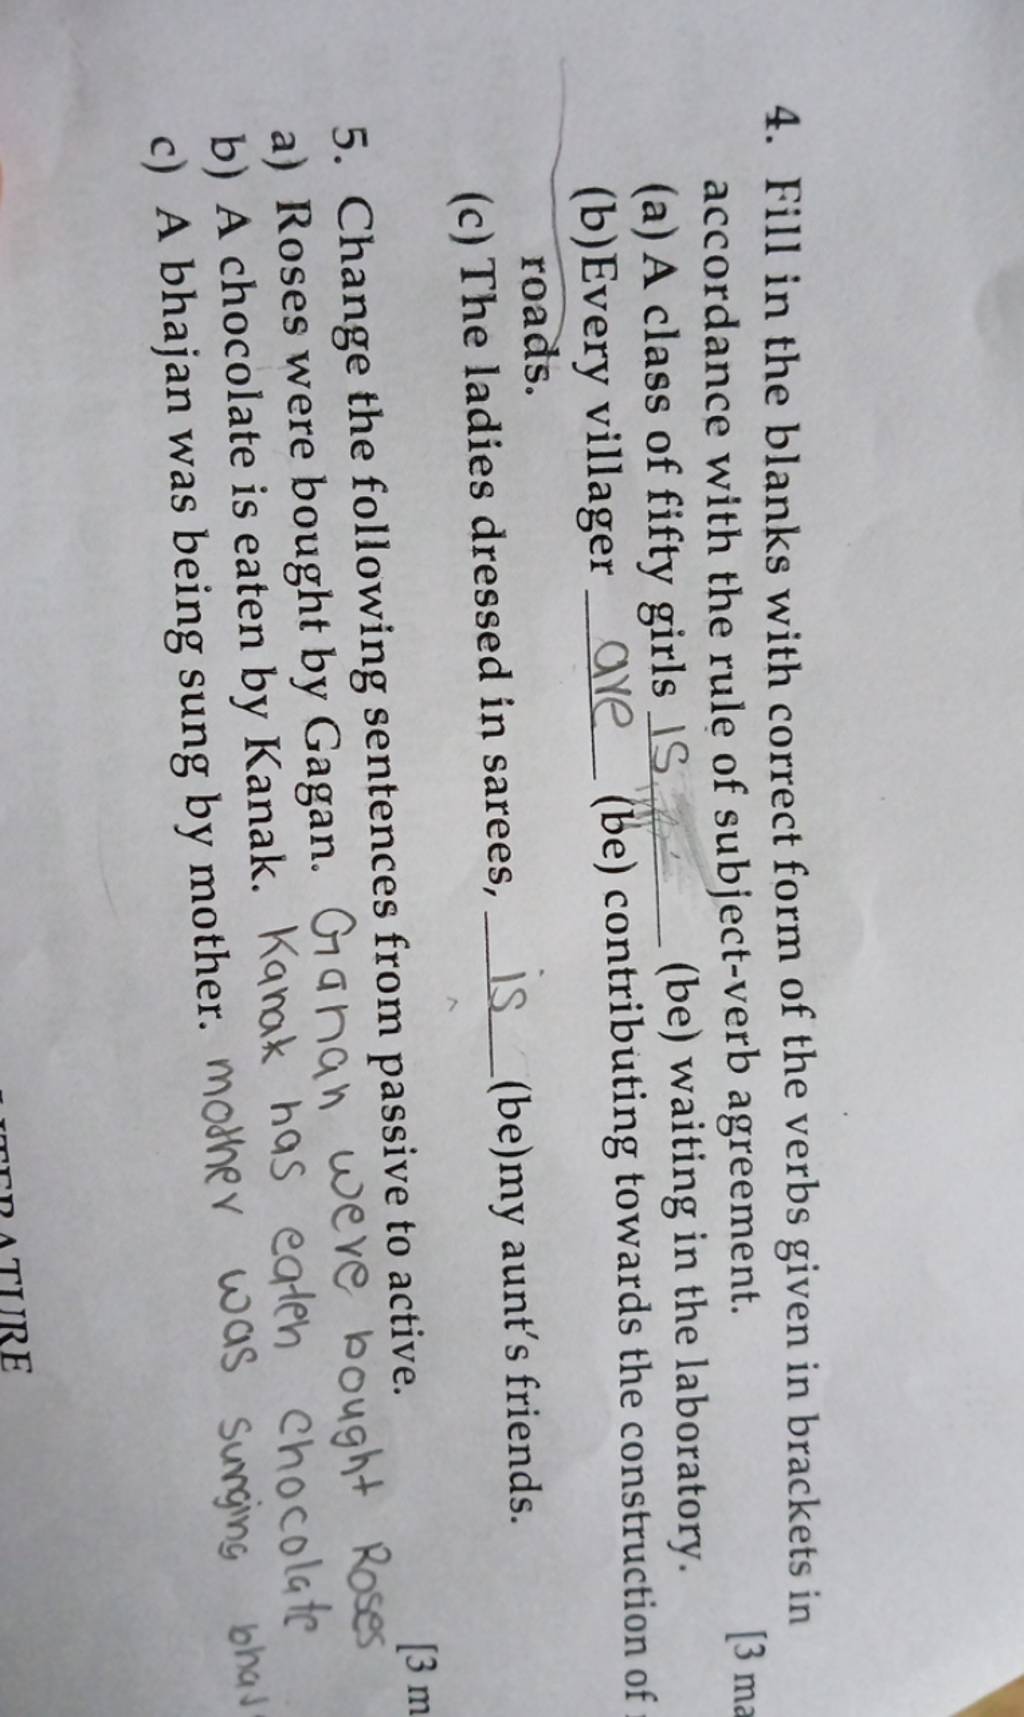 4. Fill in the blanks with correct form of the verbs given in brackets in
accordance with the rule of subject-verb agreement. [3 ma
(a) A class of fifty girls is (be) waiting in the laboratory.
(b)Every villager are (be) contributing towards the construction of
roads.
(c) The ladies dressed in sarees, is (be)my aunt's friends.
5. Change the following sentences from passive to active. [3 m
a) Roses were bought by Gagan. Ganan were bought Roses
b) A chocolate is eaten by Kanak. Kanak has eaten chocolate
c) A bhajan was being sung by mother. mother was sunging bhaj